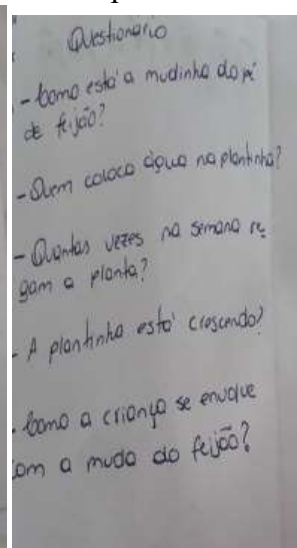 Questionario
- Como está a mudinha do pé
de feijão?
- Quem coloca água na plantinha?
- Quantas vezes na semana re
gam a planta?
- A plantinha está crescendo?
- Como a criança se envolve
com a muda do feijão?